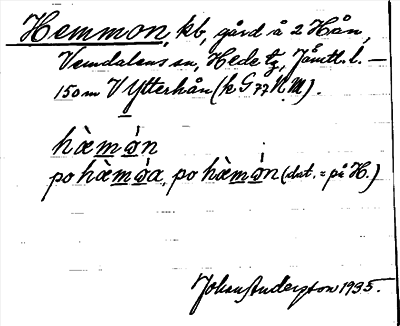 Hemmon, kb, gård å 2 Hån,
Vemdalens sn, Hede tg, Jämtl. l. —
150 m V Ytterhån (k G 77 N.M).
hæ̀mòn
po hæ̀mòa, po hæ̀mòn (dat. = på H.)
Johan Andersson 1935.